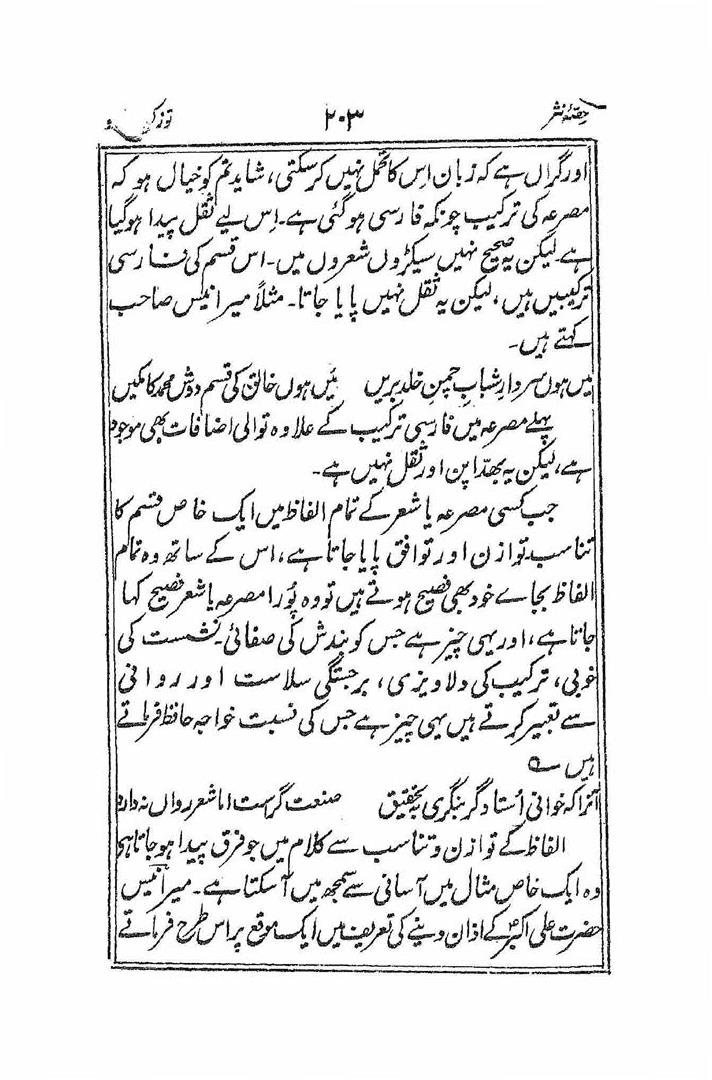 حصۂ نثر ۲۰۳
اور گراں ہے کہ زبان اس کا تحمل نہیں کر سکتی، شاید تم کو خیال ہو کہ
مصرعہ کی ترکیب چونکہ فارسی ہو گئی ہے۔ اِس لیے ثقل پیدا ہو گیا
ہے لیکن یہ صحیح نہیں سیکڑوں شعروں میں۔ اس قسم کی فارسی
ترکیبیں ہیں، لیکن یہ ثقل نہیں پایا جاتا۔ مثلاً میر انیس صاحب
کہتے ہیں۔
میں ہوں سردارِ شبابِ چمنِ خلدِ بریں میں ہوں خالق کی قسم دوش محمدؐ کا مکیں
پہلے مصرعہ میں فارسی ترکیب کے علاوہ توالی اضافات بھی موجود
ہے، لیکن یہ بھدّا پن اور ثقل نہیں ہے۔
جب کسی مصرعہ یا شعر کے تمام الفاظ میں ایک خاص قسم کا
تناسب توازن اور توافق پایا جاتا ہے، اس کے ساتھ وہ تمام
الفاظ بجاے خود بھی فصیح ہوتے ہیں تو وہ پُورا مصرعہ یا شعر فصیح کہا
جاتا ہے، اور یہی چیز ہے جس کو بندش کی صفائی۔ نشست کی
خوبی، ترکیب کی دلاویزی، برجستگی سلاست اور روانی
سے تعبیر کرتے ہیں یہی چیز ہے جس کی نسبت خواجہ حافظ فرماتے
ہیں ؎
آنرا کہ خوانی اُستاد گر بنگری بہ تحقیق صنعت گر ست اما شعر رواں نہ دارد
الفاظ کے توازن و تناسب سے کلام میں جو فرق پیدا ہو جاتا ہی
وہ ایک خاص مثال میں آسانی سے سمجھ میں آ سکتا ہے۔ میر انیس
حضرت علی اکبرؑ کے اذان دینے کی تعریف میں ایک موقع پر اس طرح فرماتے